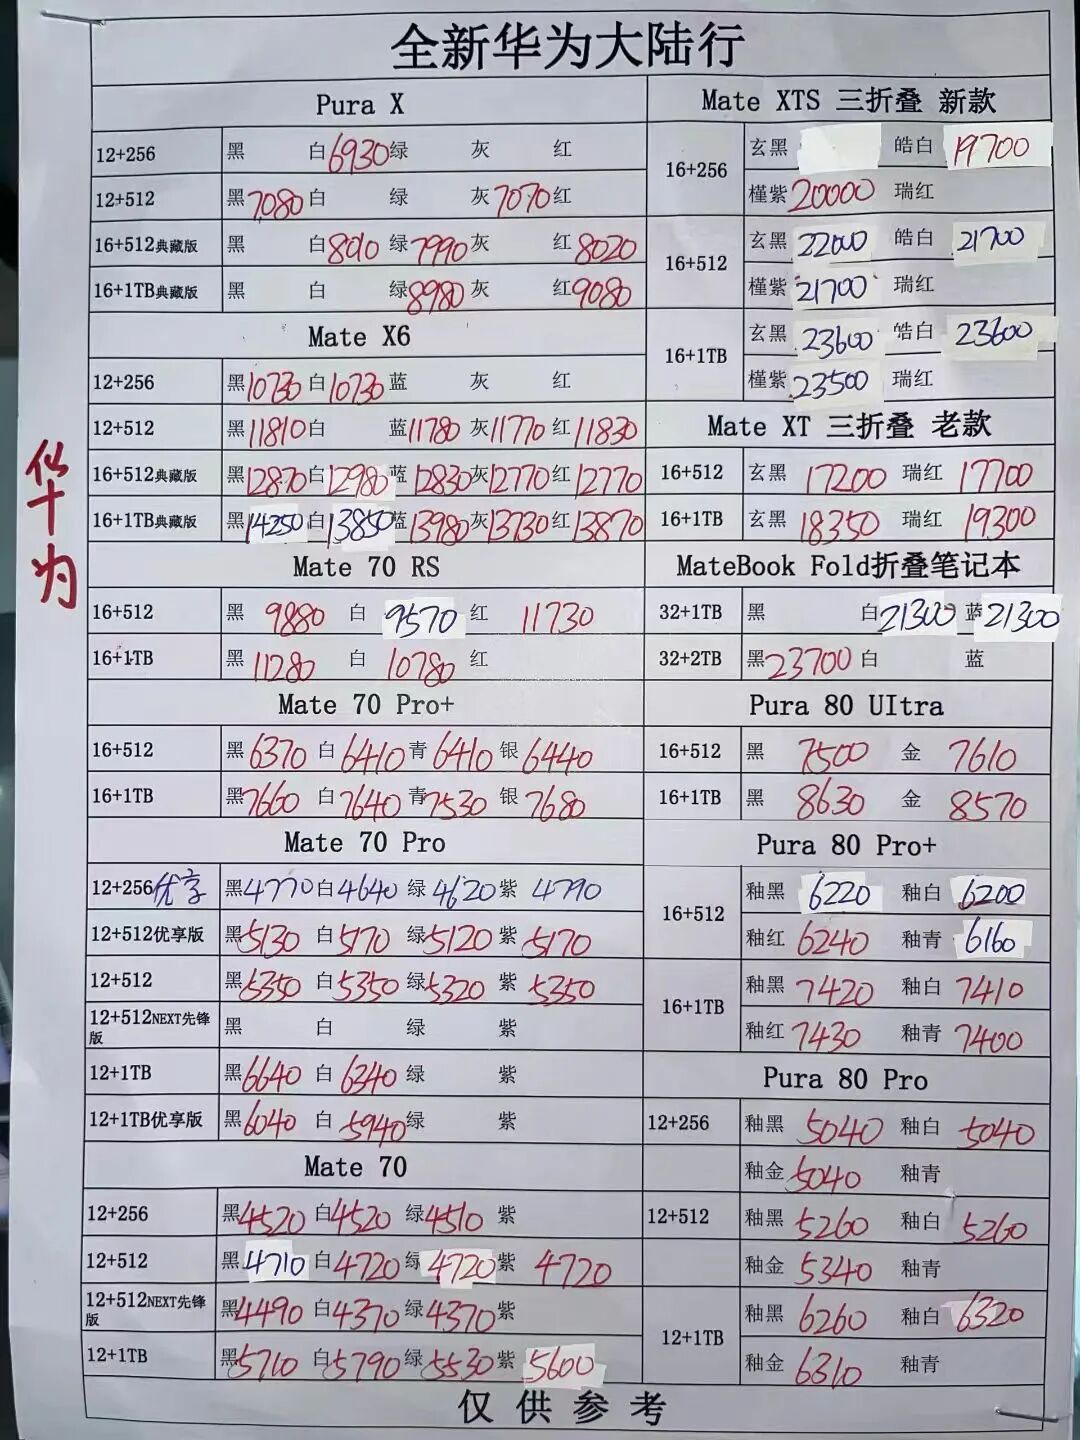 全新华为大陆行
华为
Pura X
12+256 黑 白6930 绿 灰 红
12+512 黑7080 白 绿 灰7070 红
16+512典藏版 黑 白8010 绿7990 灰 红8020
16+1TB典藏版 黑 白 绿8980 灰 红9080
Mate X6
12+256 黑10730 白10730 蓝 灰 红
12+512 黑11810 白 蓝11780 灰11770 红11830
16+512典藏版 黑12870 白12980 蓝12830 灰12770 红12770
16+1TB典藏版 黑14250 白13850 蓝13980 灰13730 红13870
Mate 70 RS
16+512 黑 9880 白 9570 红 11730
16+1TB 黑 11280 白 10780 红
Mate 70 Pro+
16+512 黑6370 白6410 青6410 银6440
16+1TB 黑7660 白7640 青7530 银7680
Mate 70 Pro
12+256优享 黑4770 白4640 绿4620 紫4790
12+512优享版 黑5130 白5170 绿5120 紫5170
12+512 黑5350 白5350 绿5320 紫5350
12+512NEXT先锋版 黑 白 绿 紫
12+1TB 黑6640 白6340 绿 紫
12+1TB优享版 黑6040 白5940 绿 紫
Mate 70
12+256 黑4520 白4520 绿4510 紫
12+512 黑4710 白4720 绿4720 紫4720
12+512NEXT先锋版 黑4490 白4370 绿4370 紫
12+1TB 黑5710 白5790 绿5530 紫5600
Mate XTS 三折叠 新款
16+256 玄黑 皓白 19700
槿紫20000 瑞红
16+512 玄黑 22000 皓白 21700
槿紫21700 瑞红
16+1TB 玄黑 23600 皓白 23600
槿紫23500 瑞红
Mate XT 三折叠 老款
16+512 玄黑 17200 瑞红17700
16+1TB 玄黑 18350 瑞红 19300
MateBook Fold折叠笔记本
32+1TB 黑 白21300 蓝21300
32+2TB 黑23700 白 蓝
Pura 80 UItra
16+512 黑 7500 金 7610
16+1TB 黑 8630 金 8570
Pura 80 Pro+
16+512 釉黑 6220 釉白 6200
釉红 6240 釉青 6160
16+1TB 釉黑 7420 釉白 7410
釉红7430 釉青 7400
Pura 80 Pro
12+256 釉黑 5040 釉白 5040
釉金5040 釉青
12+512 釉黑 5260 釉白 5260
釉金 5340 釉青
12+1TB 釉黑 6260 釉白 6320
釉金 6310 釉青
仅供参考